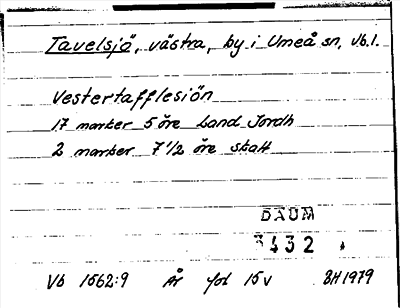 Tavelsjö, västra, by i Umeå sn, Vb.l.
Vestertafflesiön
17 marker 5 öre Land Jordh
2 marker 7 1/2 öre skatt
DAUM
3432
Vb 1662:9 År fol 15v BH 1979